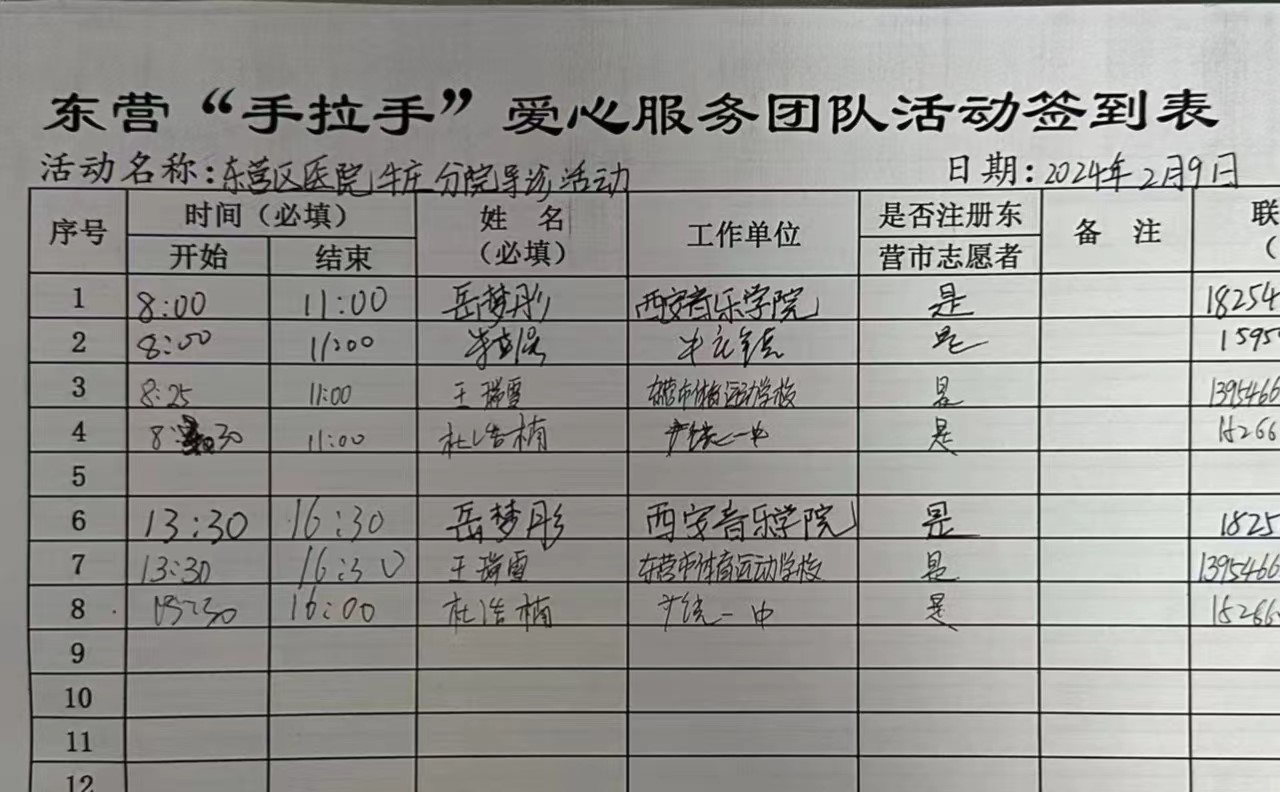 东营“手拉手”爱心服务团队活动签到表
活动名称：东营区医院牛庄分院导诊活动 日期：2024年2月9日
序号 时间（必填） 姓名（必填） 工作单位 是否注册东营市志愿者 备注 联（
开始 结束
1 8:00 11:00 岳梦彤 西安音乐学院 是 18254
2 8:00 11:00 是 1595
3 8:25 11:00 王瑞雪 东营市体育运动学校 是 1395466
4 8:30 11:00 杜浩楠 广饶一中 是 15266
5
6 13:30 16:30 岳梦彤 西安音乐学院 是 1825
7 13:30 16:30 王瑞雪 东营市体育运动学校 是 1395466
8 16:00 杜浩楠 广饶一中 是 15266
9
10
11
12